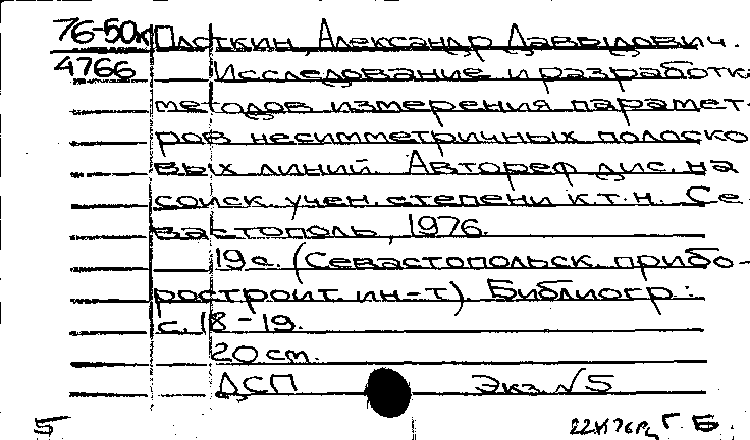 76-50к Плоткин, Александр Давыдович.
4766 Исследование и разработка
методов измерения парамет-
ров несимметричных полоско
вых линий. Автореф дис. на
соиск. учен. степени к.т.н. Се-
вастополь, 1976.
19с. (Севастопольск. прибо-
ростроит. ин-т). Библиогр.:
с. 18-19.
20 см.
ДСП Экз. №5
5 Г. Б.